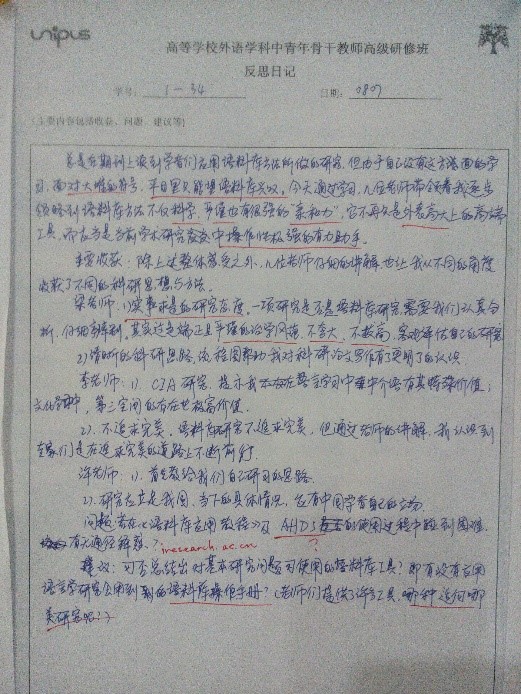 unipus
高等学校外语学科中青年骨干教师高级研修班
反思日记
学号: 1-34 日期: 0807
(主要内容包括收益、问题、建议等)
总是在期刊上读到学者们应用语料库方法所做的研究,但由于自己没有这方面的学
习,面对大堆的符号,平日里只能望语料库兴叹,今天通过学习,几位老师带领着我逐步
领略到语料库方法不仅科学、严谨也有很强的“亲和力”,它不再只是外表高大上的高端
工具,而应当是当前学术研究中操作性极强的有力助手。
主要收获:除上述整体感受之外,几位老师仔细的讲解也让我从不同的角度
收获了不同的科研思想与方法。
梁老师:1)实事求是的研究态度。一项研究是否是语料库研究需要我们认真分
析、仔细辨别。其实这是端正且严谨的治学风范,不夸大、不拔高,客观评估自己的研究
2)清晰的科研思路,流程图帮助我对科研论文写作有了更明了的认识
李老师:1)CIA研究,提示我在语言学习中中介语有其特殊价值;
第三空间的存在也极富价值。
2)不追求完美。语料库研究不追求完美,但通过老师的讲解,我认识到
专家们是在追求完美的道路上不断前行
许老师:1)首先教给我们自己研习的思路
2)研究应立足我国、当下的具体情况,应有中国学者自己的立场
问题:若在《语料库应用教程》及AHDS的使用过程中碰到困难
有无途径解惑?iresearch.ac.cn ?
建议:可否总结出对基本研究问题可使用的语料库工具?即有没有应用
语言学研究会用到的语料库操作手册?(老师们提供了许多工具,哪种适合哪
类研究呢?)